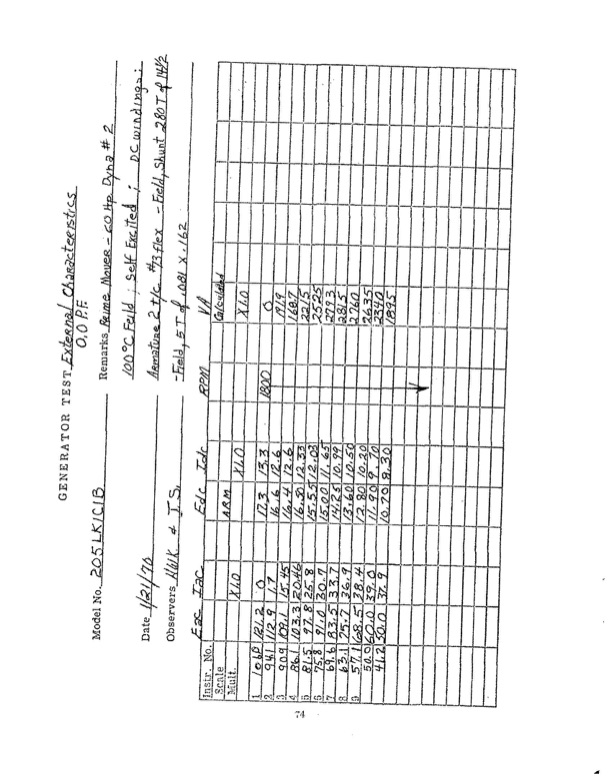 GENERATOR TEST External Characteristics
0.0 P.F.
Model No. 205LK1C1B Remarks Prime Mover - 60 Hp. Dyna # 2
100°C Feild ; Self Excited ; DC windings:
Date 1/21/70 Armature 2 t/c #73 flex - Field, Shunt 280T of 14½
Observers & J.S. - Field, 5T of .081 x .162
Eac Iac Edc Idc RPM VA
Instr. No. Calculated
Scale ARM
Mult. X1.0 X1.0 X1.0
1 106 121.2 0 17.3 13.3 1800 0
2 94.1 112.9 1.7 16.6 12.6 191.9
3 90.9 109.1 15.45 16.4 12.6 1687
4 86.1 103.3 20.46 16.30 12.33 2215
5 81.5 97.8 25.8 15.55 12.03 2525
6 75.8 91.0 30.7 15.00 11.65 2793
7 69.6 83.5 33.7 14.25 10.99 2815
8 63.1 75.7 36.9 13.60 10.50 2760
9 57.1 68.5 38.4 12.80 10.20 2635
50.0 60.0 39.0 11.90 9.70 2340
41.2 50.0 37.9 10.70 8.30 1895
74